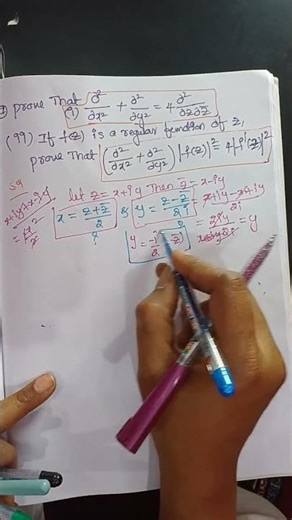 prove That
(i) ∂²/∂x² + ∂²/∂y² = 4 ∂²/∂z∂z̄
(ii) If f(z) is a regular function of z,
prove That (∂²/∂x² + ∂²/∂y²) |f(z)|² = 4|f'(z)|²
let z = x+iy Then z̄ = x-iy
x = z+z̄/2 & y = z-z̄/2i = x+iy-x+iy/2i
= 2iy/2i = y
y = -i/2